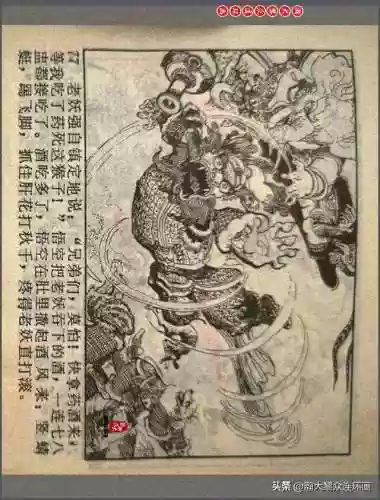 77 老妖强自镇定地说：“兄弟们，莫怕！快拿药酒来，
等我吃了药死这猴子！”悟空把老妖吞下的酒，一连七八
盅都接吃了。酒吃多了，悟空在肚里撒起酒风来：竖蜻
蜓，踢飞脚，抓住肝花打秋千，疼得老妖直打滚。
头条 @瀚大聚众连环画